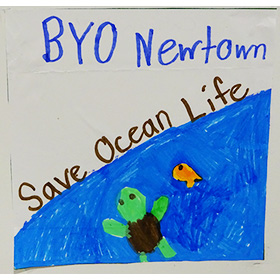 BYO Newtown
Save Ocean Life